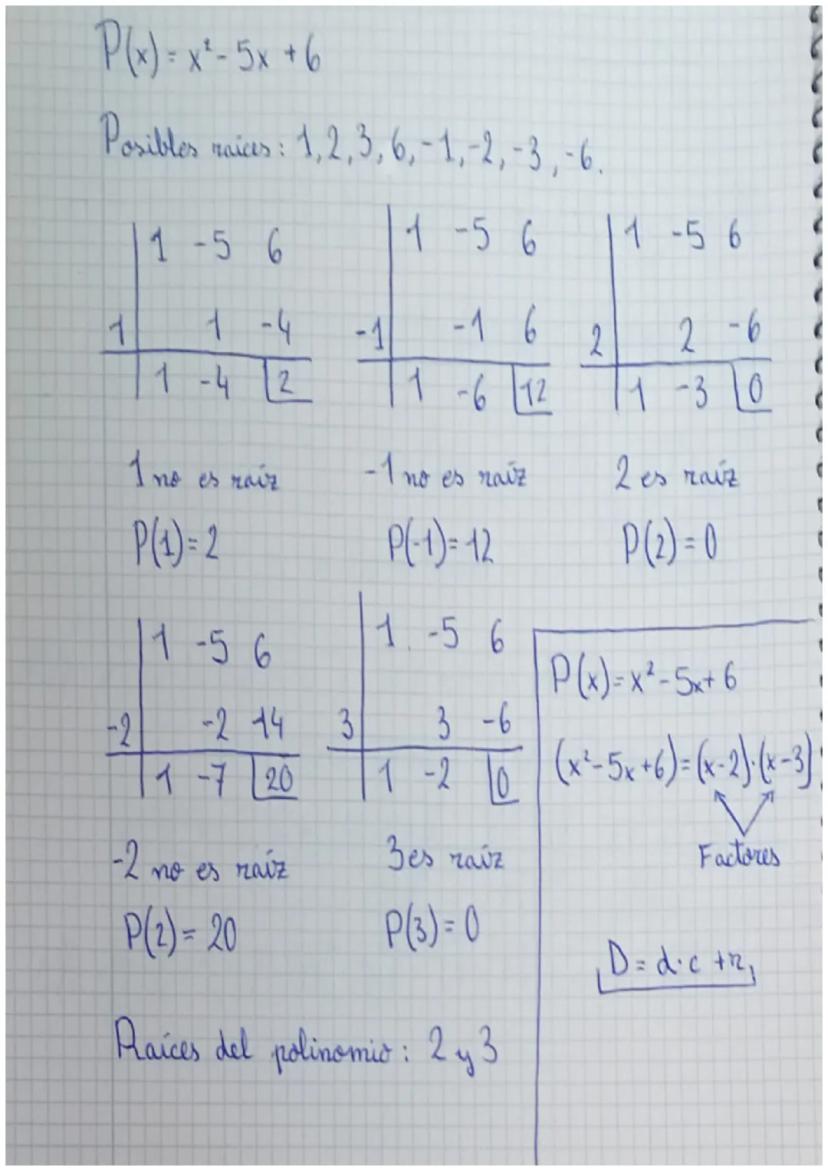 P(x) = x² - 5x + 6
Posibles raíces: 1, 2, 3, 6, -1, -2, -3, -6.
1 -5 6
1 1 -4
1 -4 2
1 no es raíz
P(1) = 2
1 -5 6
-1 -1 6
1 -6 12
-1 no es raíz
P(-1) = 12
1 -5 6
2 2 -6
1 -3 0
2 es raíz
P(2) = 0
1 -5 6
-2 -2 14
1 -7 20
-2 no es raíz
P(2) = 20
1 -5 6
3 3 -6
1 -2 0
3 es raíz
P(3) = 0
Raíces del polinomio: 2 y 3
P(x) = x² - 5x + 6
(x² - 5x + 6) = (x - 2) · (x - 3)
Factores
D = d · c + r